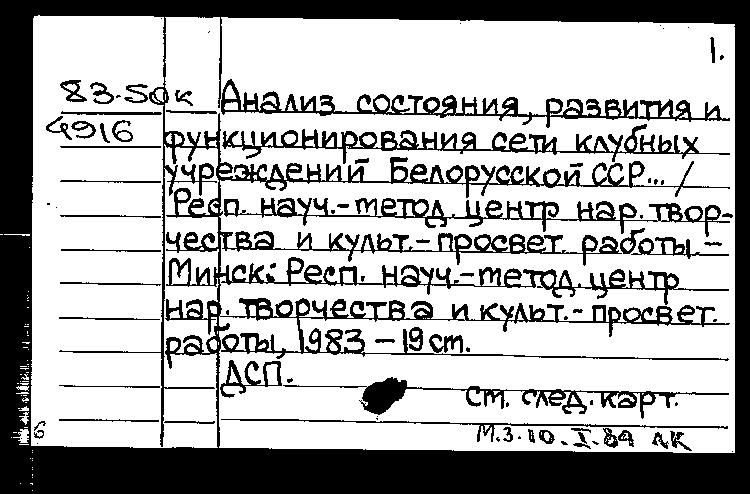 1.
83-50к Анализ состояния, развития и
4916 функционирования сети клубных
учреждений Белорусской ССР... /
Респ. науч.-метод. центр нар. твор-
чества и культ.-просвет. работы.-
Минск: Респ. науч.-метод. центр
нар. творчества и культ.-просвет.
работы, 1983 - 19 ст.
ДСП.
Ст. след. карт.
6 М.З. 10. I. 84 ЛК